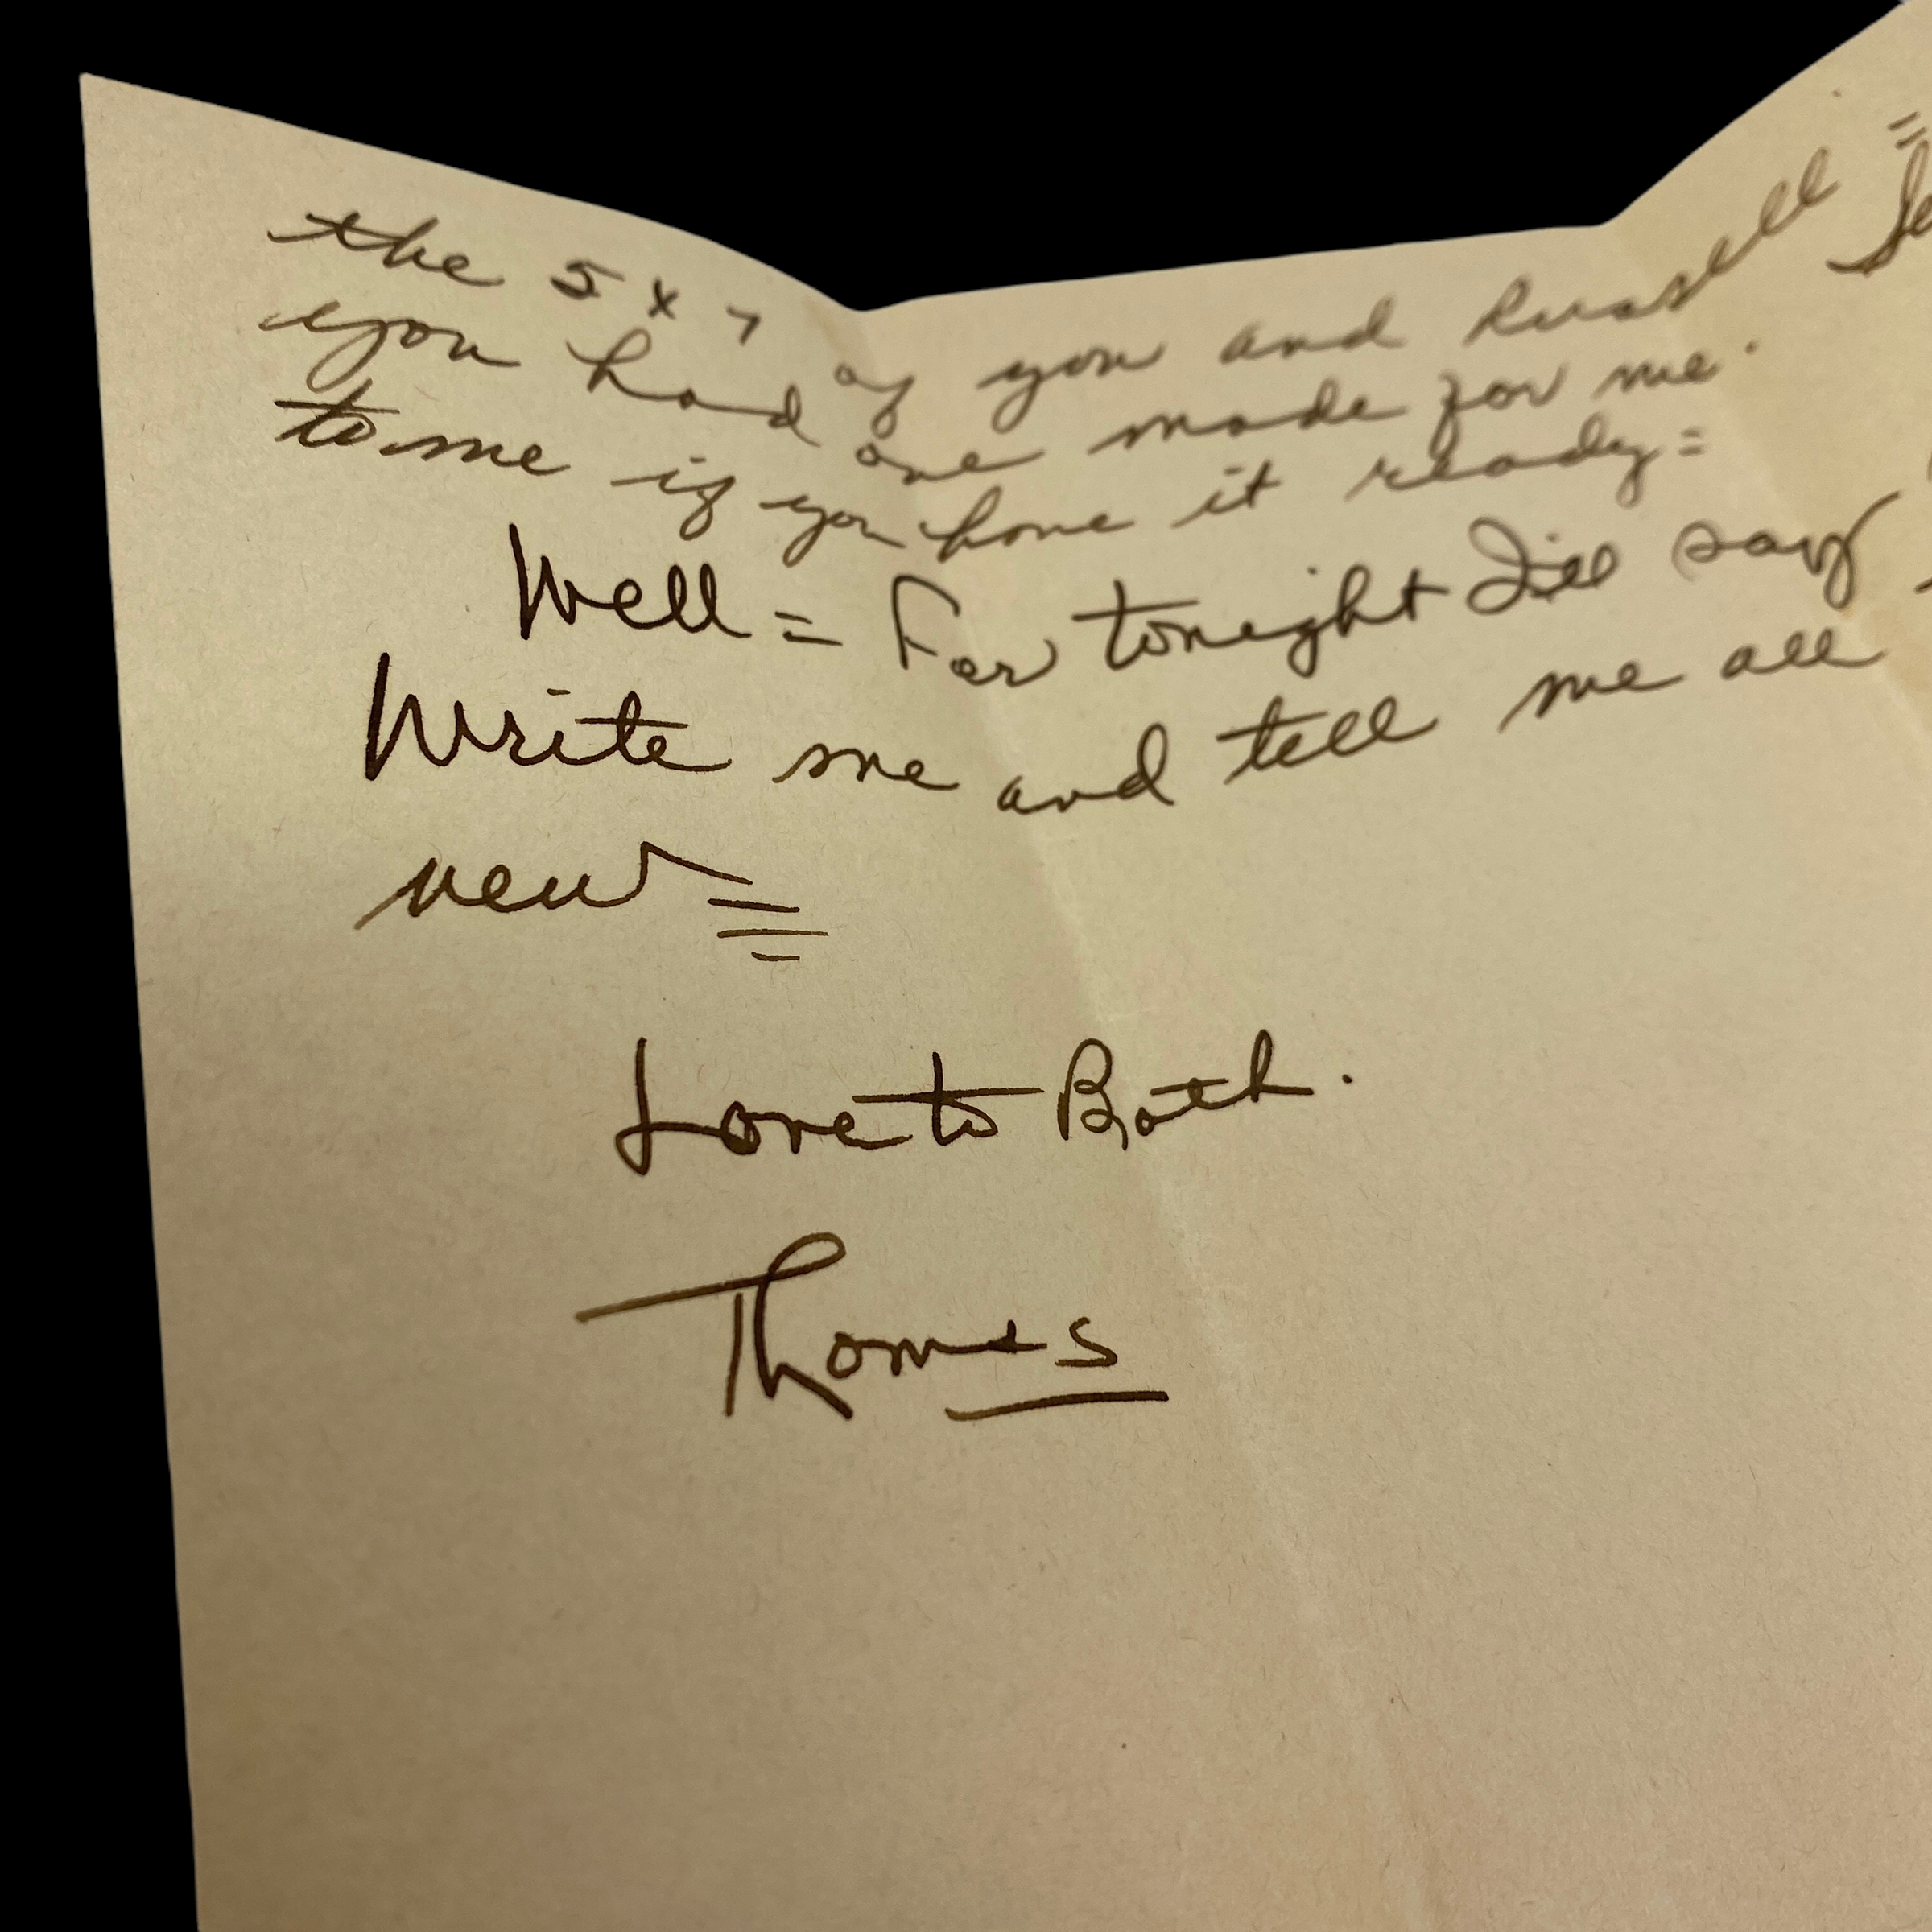 the 5 x 7 of you and Russell =
you had one made for me.
to me if you have it ready =
Well = For tonight I'll say
Write me and tell me all
new =
Love to Both.
Thomas